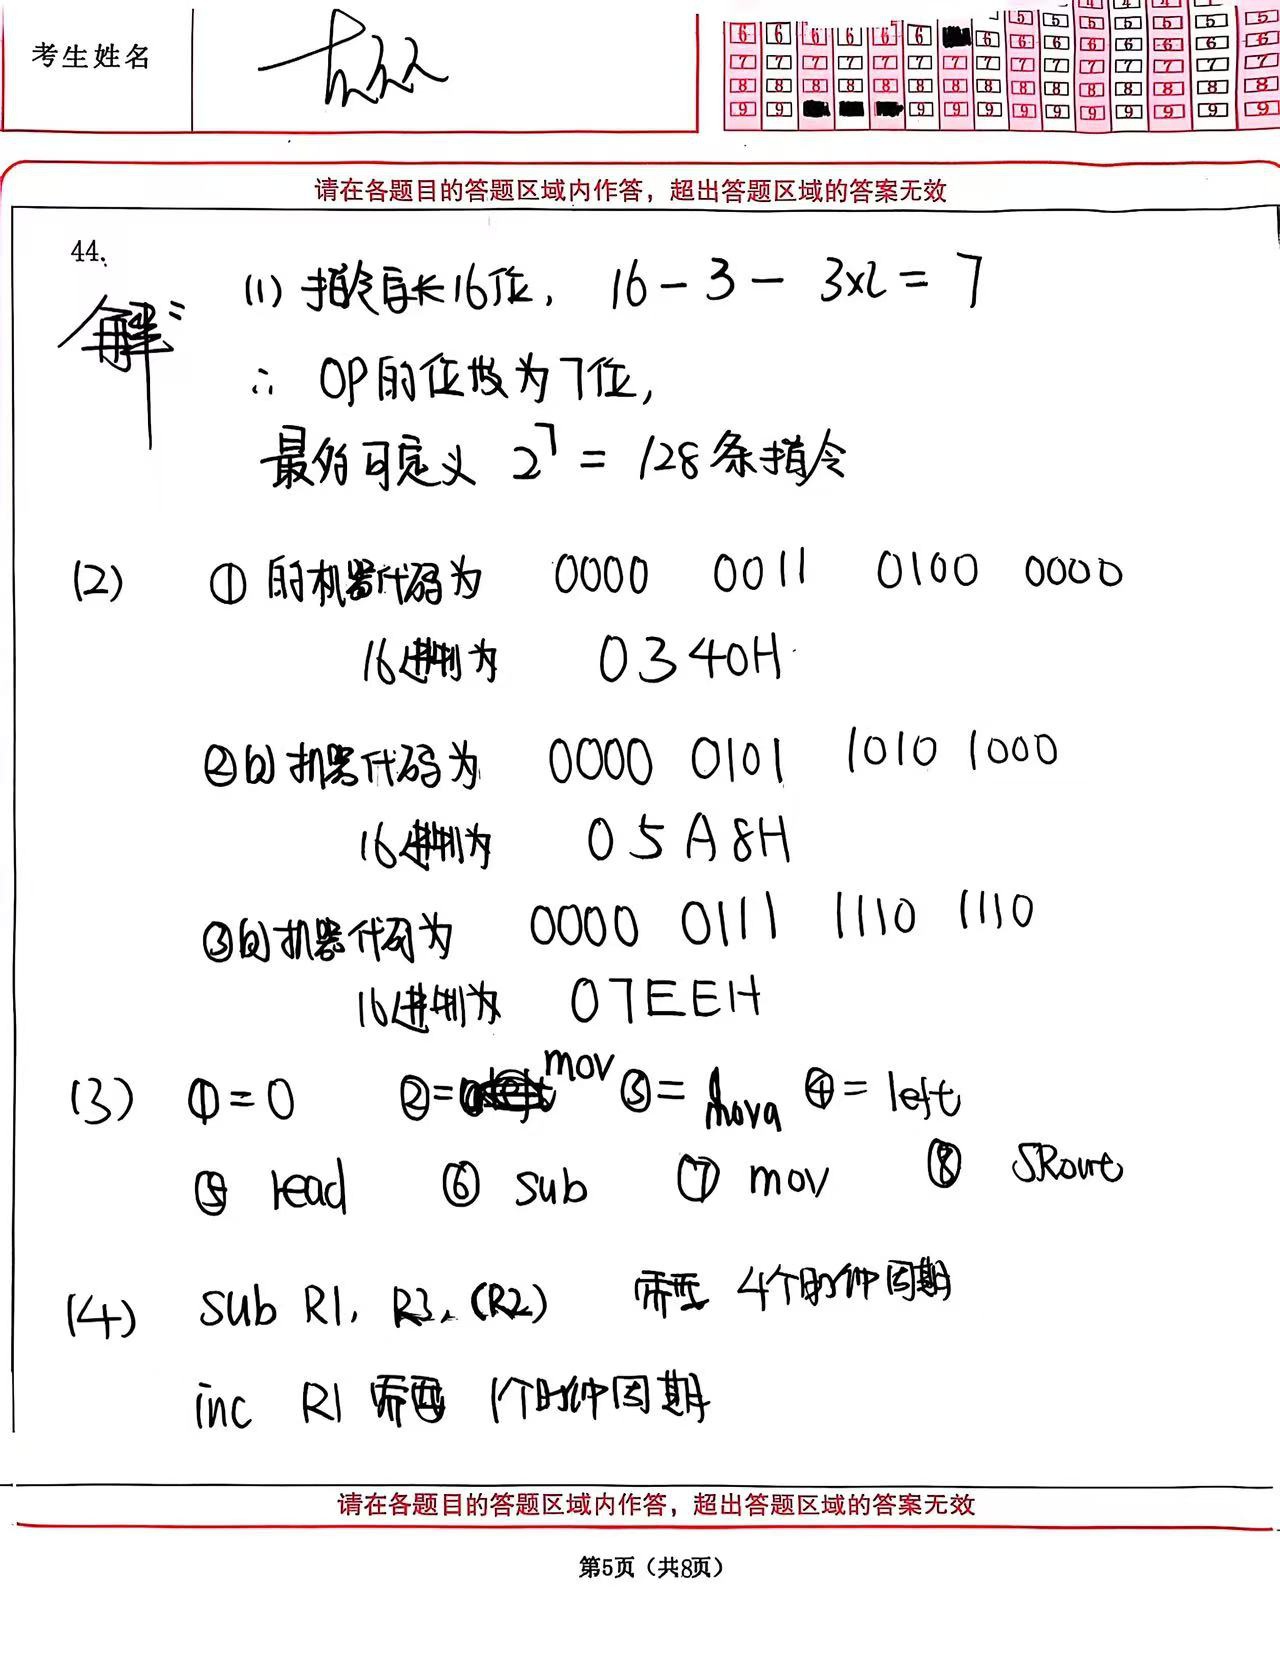 考生姓名
6 6 6 6 6 6 6 5 5 5 5 5 5 5
7 7 7 7 7 7 7 7 6 6 6 6 6 6 6
8 8 8 8 8 8 8 8 7 7 7 7 7 7 7
9 9 9 9 9 8 8 8 8 8 8 8
9 9 9 9 9 9 9
请在各题目的答题区域内作答，超出答题区域的答案无效
44.
解：
(1) 指令字长16位， 16 - 3 - 3×2 = 7
∴ OP的位数为7位，
最多可定义 2^7 = 128条指令
(2) ① 的机器代码为 0000 0011 0100 0000
16进制为 0340H
②的机器代码为 0000 0101 1010 1000
16进制为 05A8H
③的机器代码为 0000 0111 1110 1110
16进制为 07EEH
(3) ①=0 ②= mov ③= mova ④= left
⑤ read ⑥ sub ⑦ mov ⑧ SRout
(4) sub R1, R3, (R2) 需要 4个时钟周期
inc R1 需要 1个时钟周期
请在各题目的答题区域内作答，超出答题区域的答案无效
第5页（共8页）